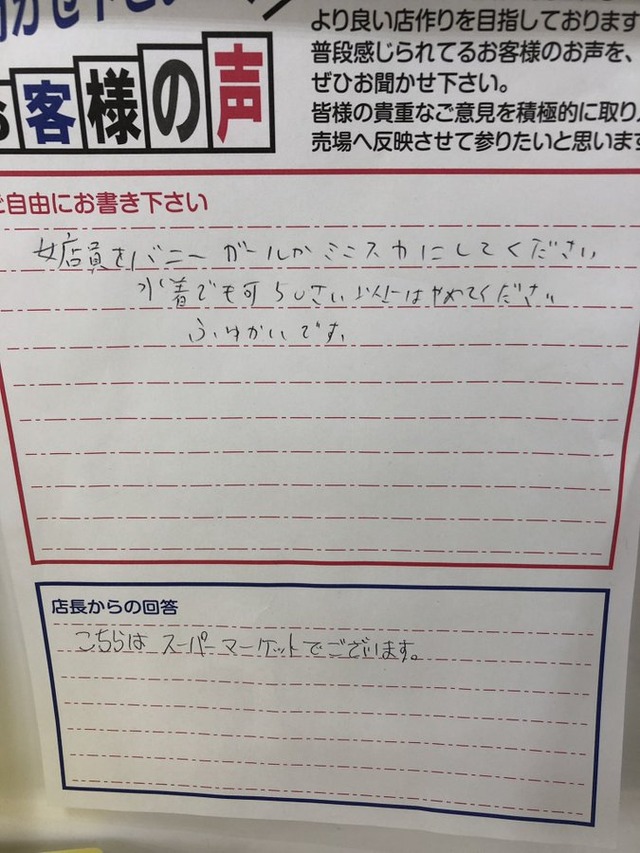 より良い店作りを目指しております
普段感じられてるお客様のお声を、
ぜひお聞かせ下さい。
皆様の貴重なご意見を積極的に取り
売場へ反映させて参りたいと思います
お客様の声
ご自由にお書き下さい
女店員をバニーガールかミニスカにしてください
水着でも可 らしさい はやめてください
ふゆかいです。
店長からの回答
こちらはスーパーマーケットでございます。